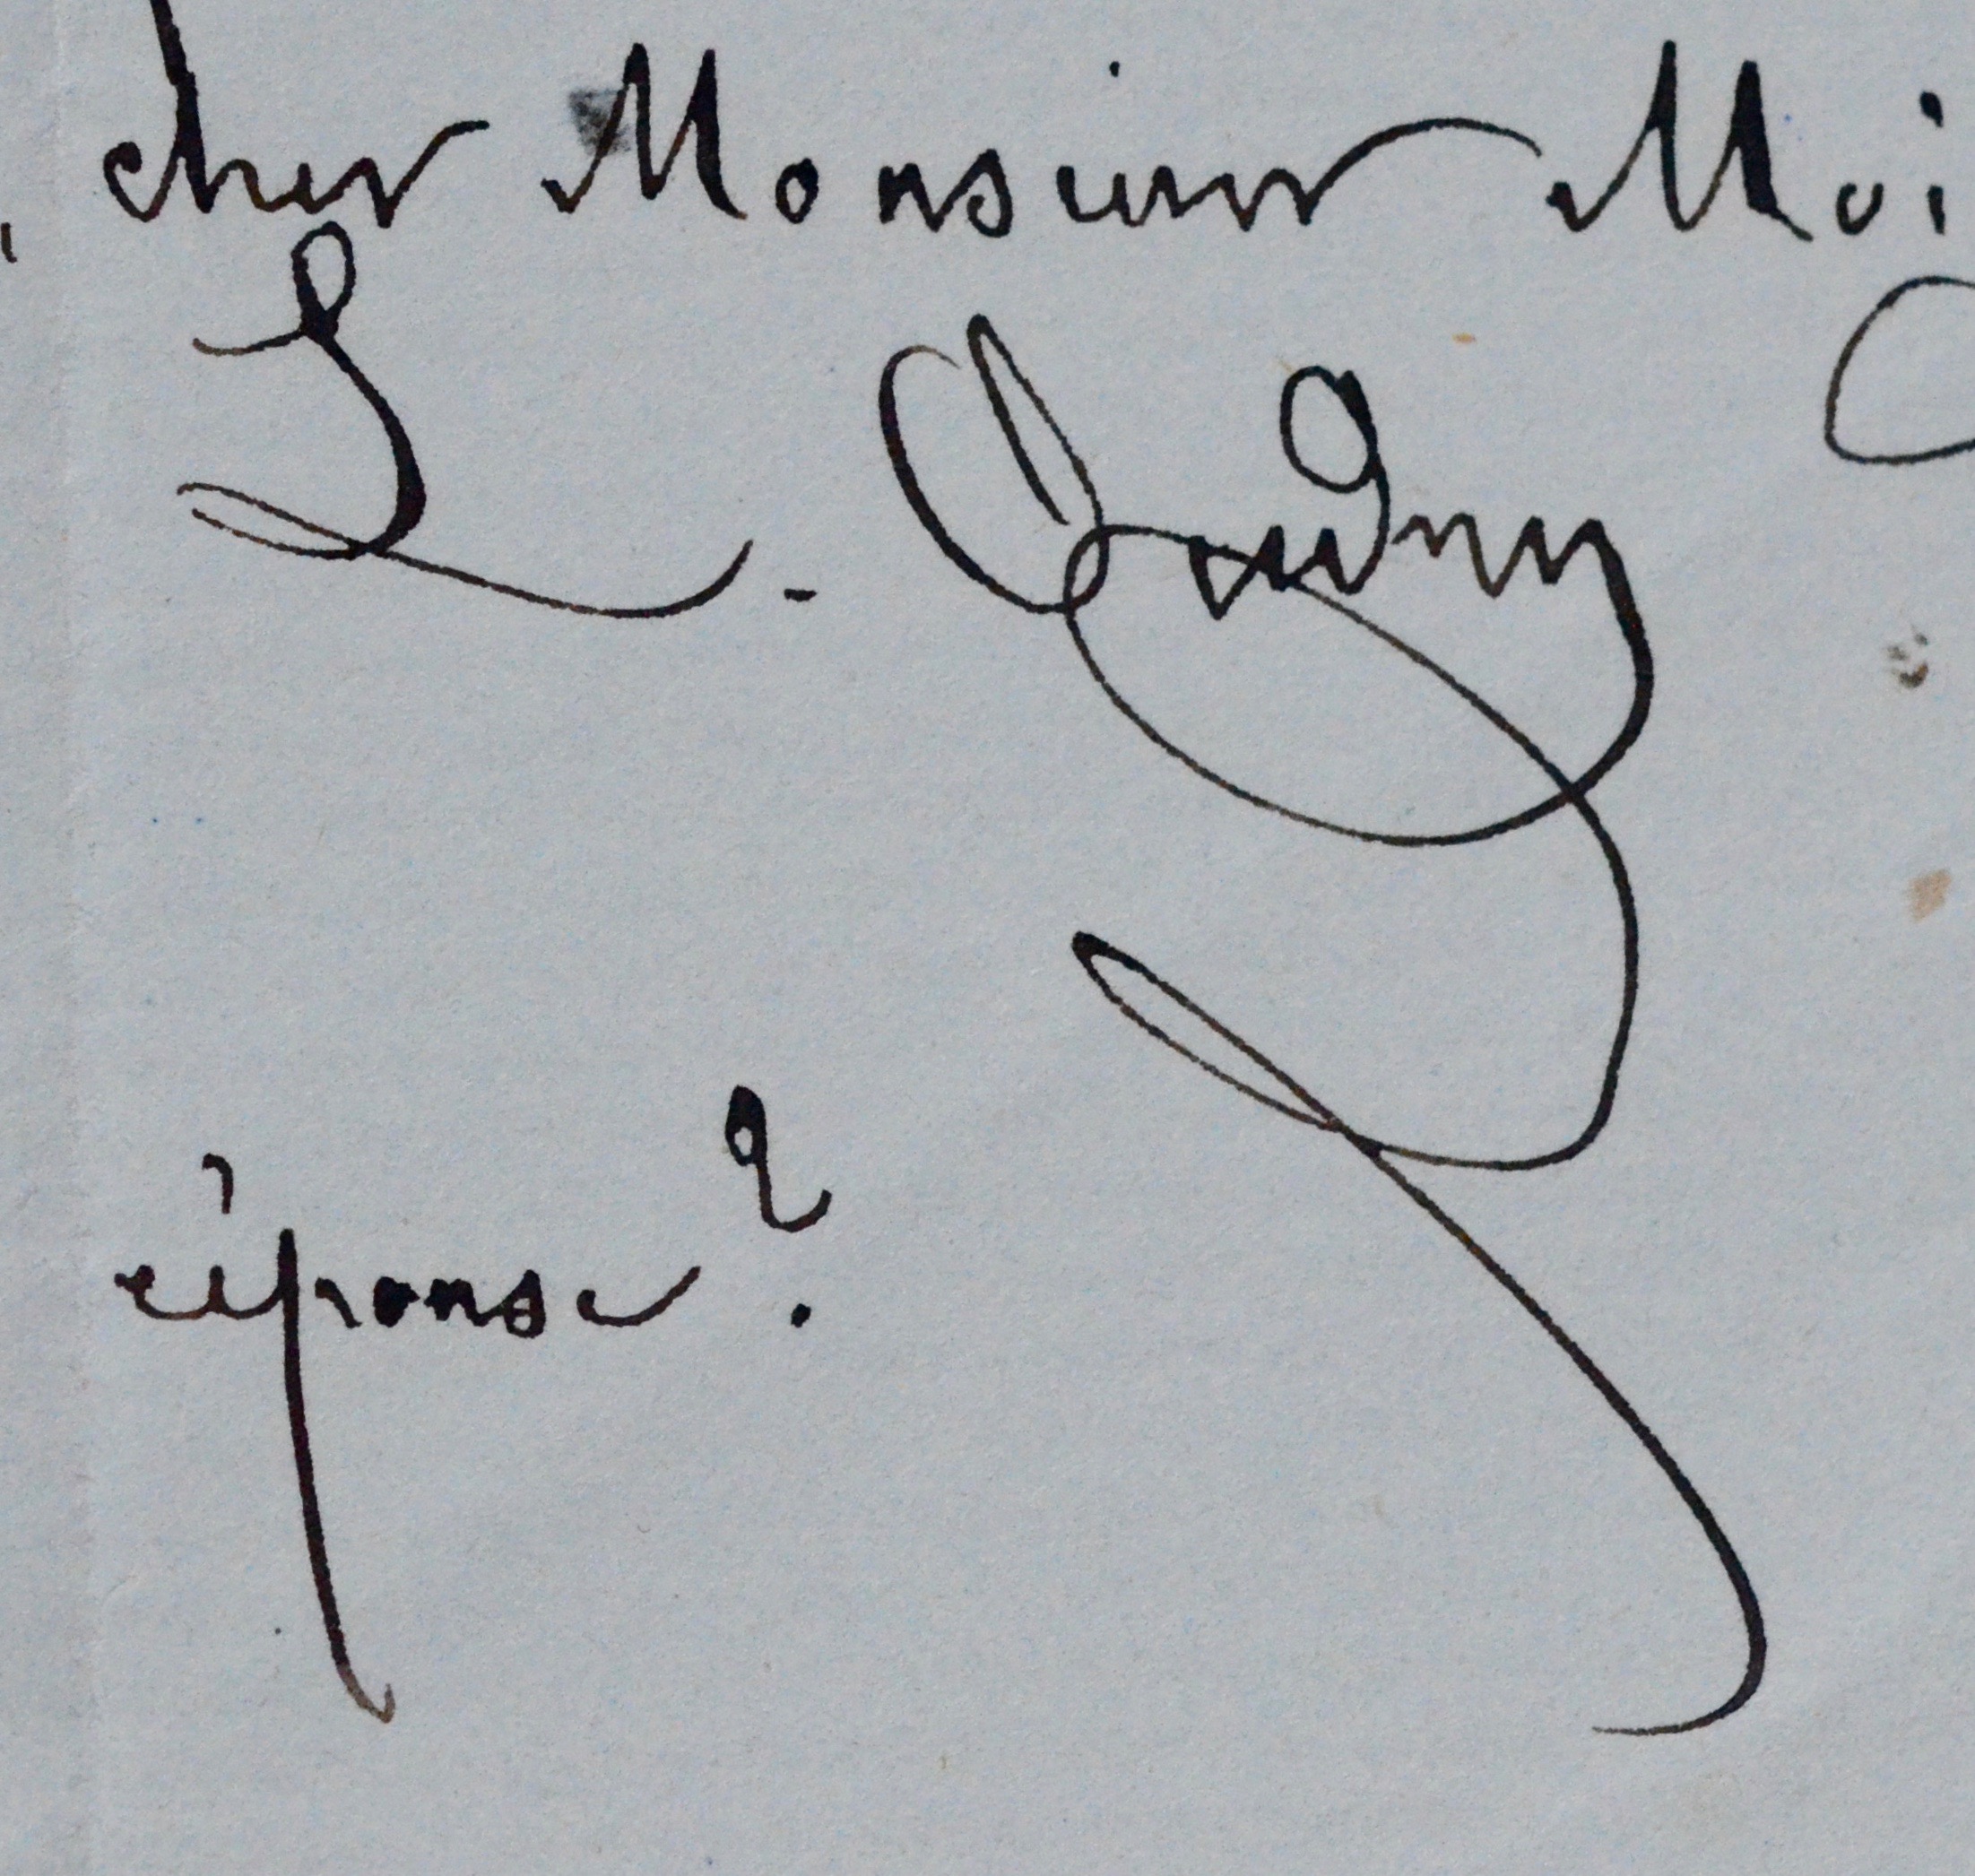 cher Monsieur Moi
L. Oudiny
réponse?